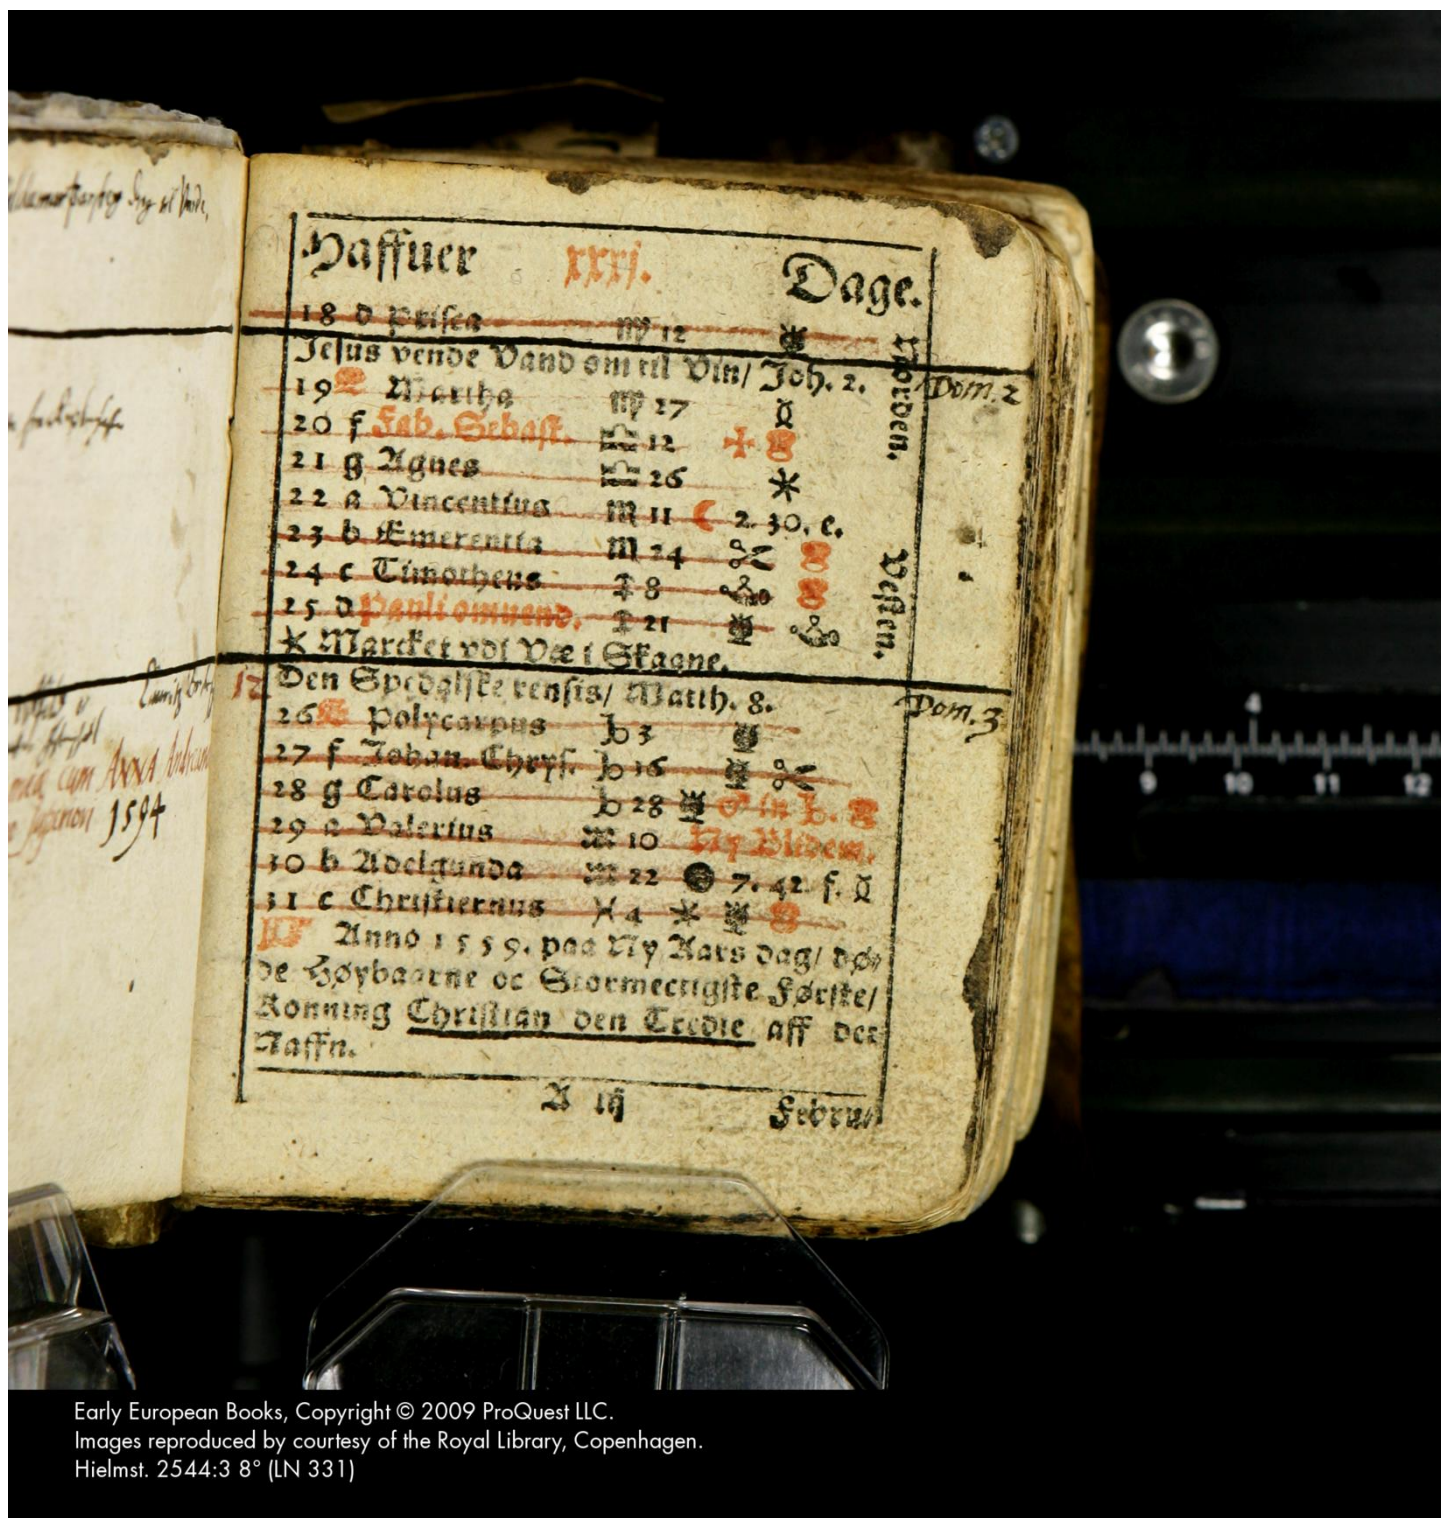 Haffuer xxxj. Dage.
18 d Prisca ♍ 12
Jesus vende Vand om til Vin/ Joh. 2.
Dom. 2
19 Martha ♍ 27 ☿
20 f Fab. Sebast. ♎ 12
21 g Agnes ♎ 26
22 a Vincentius ♏ 11 ☾ 2. 30. e.
23 b Emerentia ♏ 24
24 c Timotheus ♐ 8
25 d Pauli omuend. ♐ 21
Norden.
Vesten.
Marcket vdi Væ i Skaane.
Den Spedalske rensis/ Matth. 8.
Dom. 3
26 Polycarpus ♑ 3
27 f Johan. Chrys. ♑ 16
28 g Carolus ♑ 28 ♂ in ♑.
29 a Valerius ♒ 10 Ny Blidem.
30 b Adelgunda ♒ 22 7. 42. f. ☿
31 c Christiernus ♓ 4
Anno 1559. paa Ny Aars dag/ dø-
de Høybaarne oc Stormectigste Første/
Konning Christian den Tredie aff det
Naffn.
A iij Febru-
cum ANNA
1594
4
9 10 11 12
Early European Books, Copyright © 2009 ProQuest LLC.
Images reproduced by courtesy of the Royal Library, Copenhagen.
Hielmst. 2544:3 8° (LN 331)